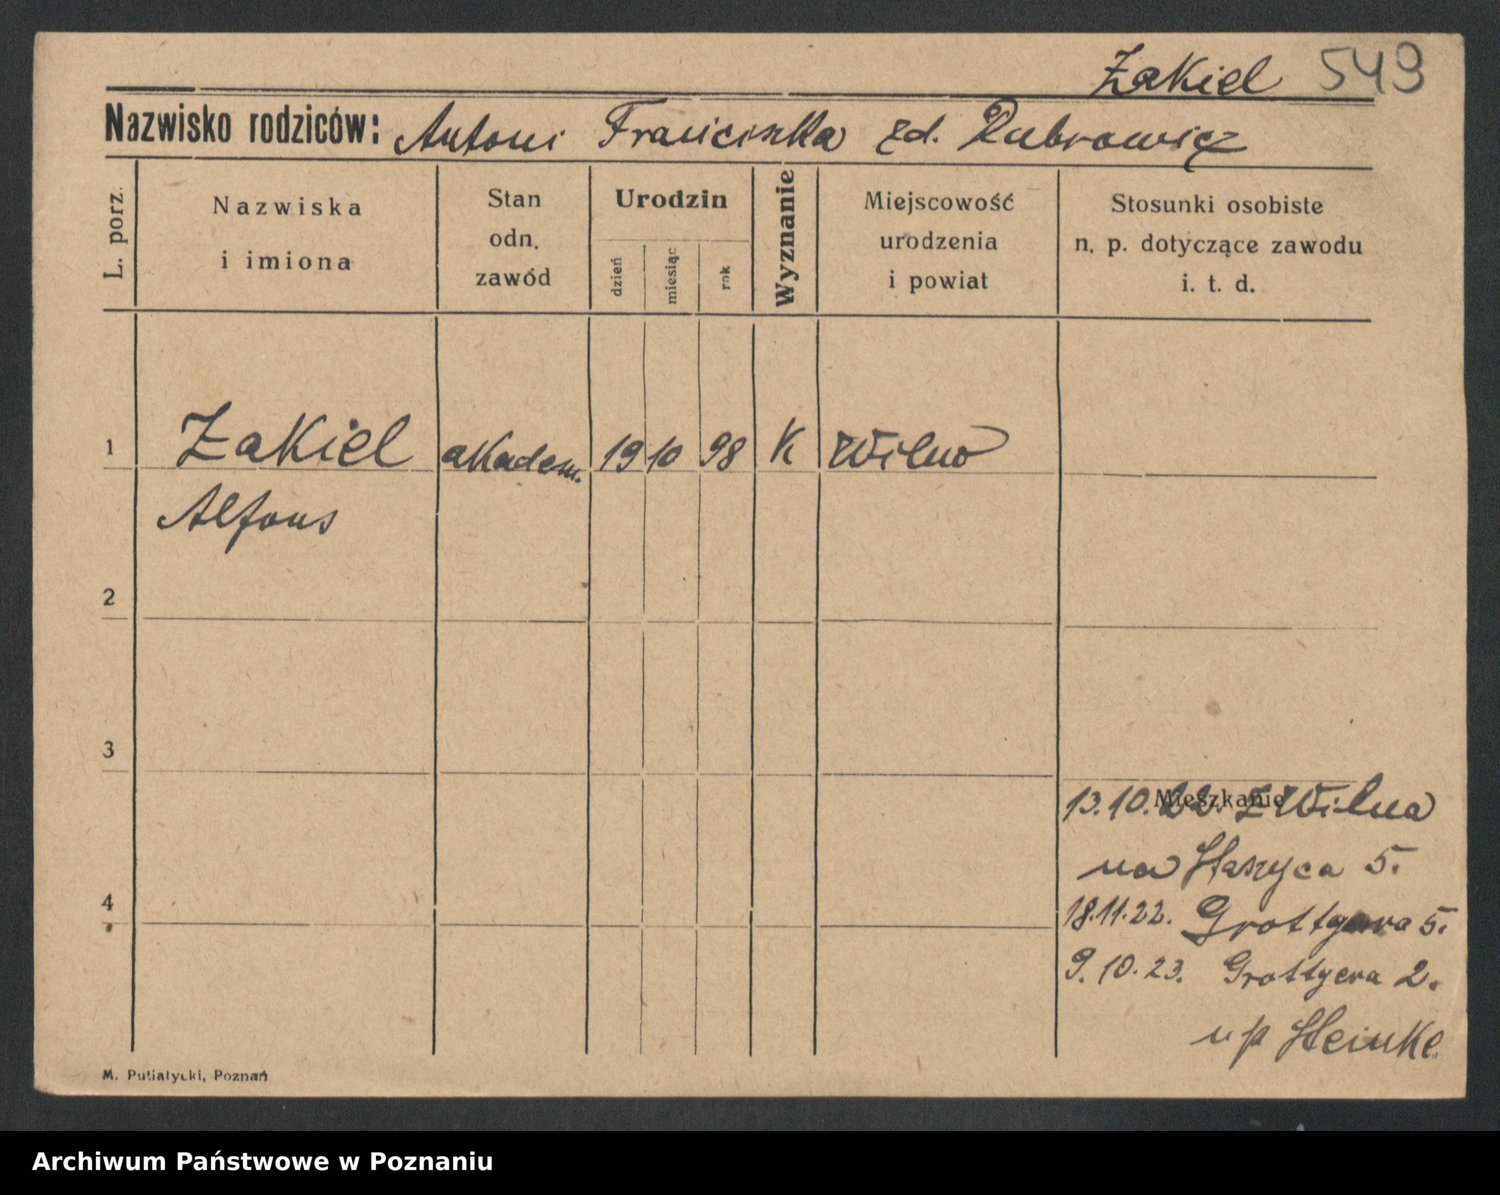 Żakiel 549
Nazwisko rodziców: Antoni Franciszka zd. Dubrowicz
L. porz.
Nazwiska
i imiona
Stan
odn.
zawód
Urodzin
dzień
miesiąc
rok
Wyznanie
Miejscowość
urodzenia
i powiat
Stosunki osobiste
n. p. dotyczące zawodu
i. t. d.
1 Żakiel akadem. 19 10 98 K Wilno
Alfons
2
3
Mieszkanie
13.10.22. z Wilna
na Staszyca 5.
4
18.11.22. Grottgera 5.
9.10.23. Grottgera 2.
u p Heinke
M. Putiatycki, Poznań
Archiwum Państwowe w Poznaniu